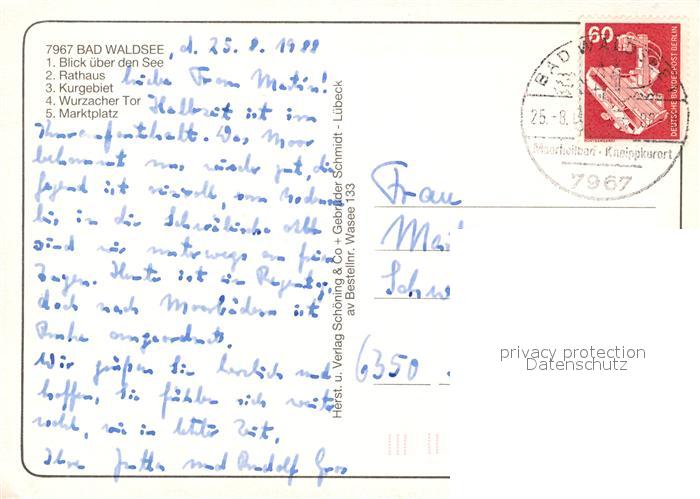 7967 BAD WALDSEE, d. 25.8.1988
1. Blick über den See
2. Rathaus
3. Kurgebiet
4. Wurzacher Tor
5. Marktplatz
Liebe Frau
Halbzeit ist im
Kuraufenthalt. Das Moor
bekommt uns wieder gut, die
Gegend ist reizvoll, vom Bodensee
bis in die Schwäbische Alb
sind wir unterwegs an freien
Tagen. Heute ist ein Regentag,
doch nach Moorbädern ist
Ruhe angeordnet.
Wir grüßen Sie herzlich und
hoffen, Sie fühlen sich weiter
wohl, wie in letzter Zeit.
Ihre Jutta und Rudolf
Herst. u. Verlag Schöning & Co + Gebrüder Schmidt - Lübeck
av Bestellnr. Wasee 133
60
DEUTSCHE BUNDESPOST BERLIN
BAD WALDSEE
25.-8.
Moorheilbad - Kneippkurort
7967
Frau
6350
privacy protection
Datenschutz